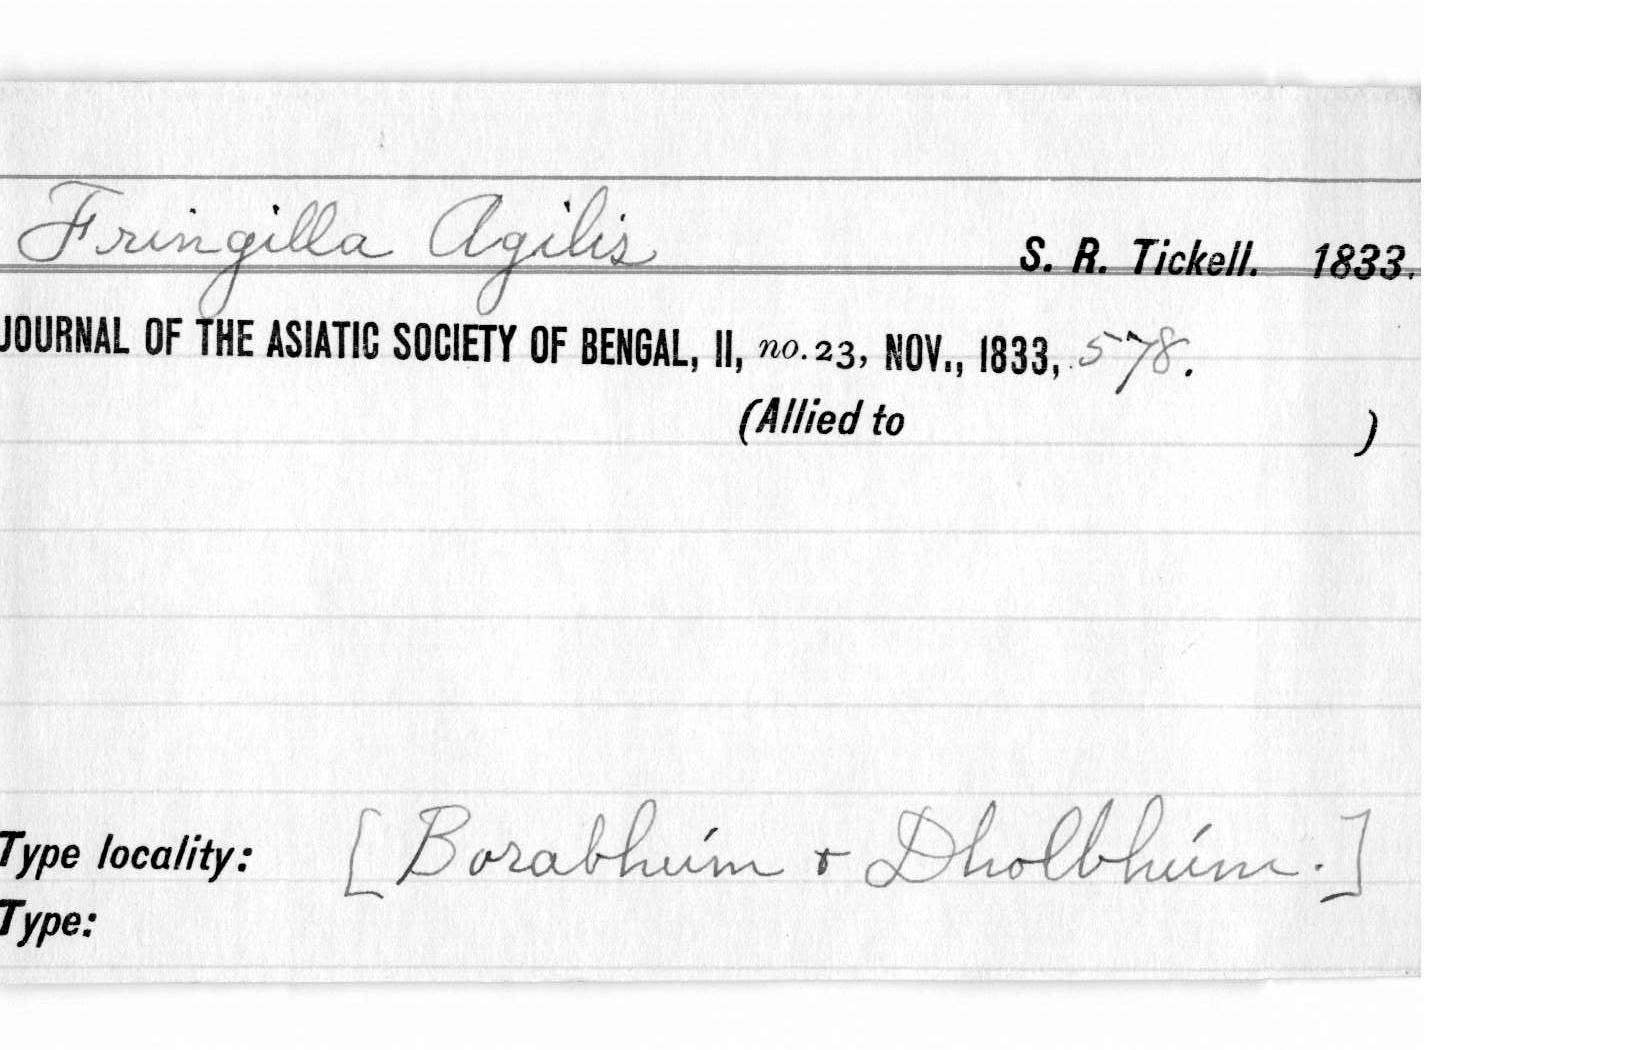 Fringilla Agilis S. R. Tickell. 1833.
JOURNAL OF THE ASIATIC SOCIETY OF BENGAL, II, no. 23, NOV., 1833, 578.
(Allied to )
Type locality: [Borabhúm & Dholbhúm.]
Type: